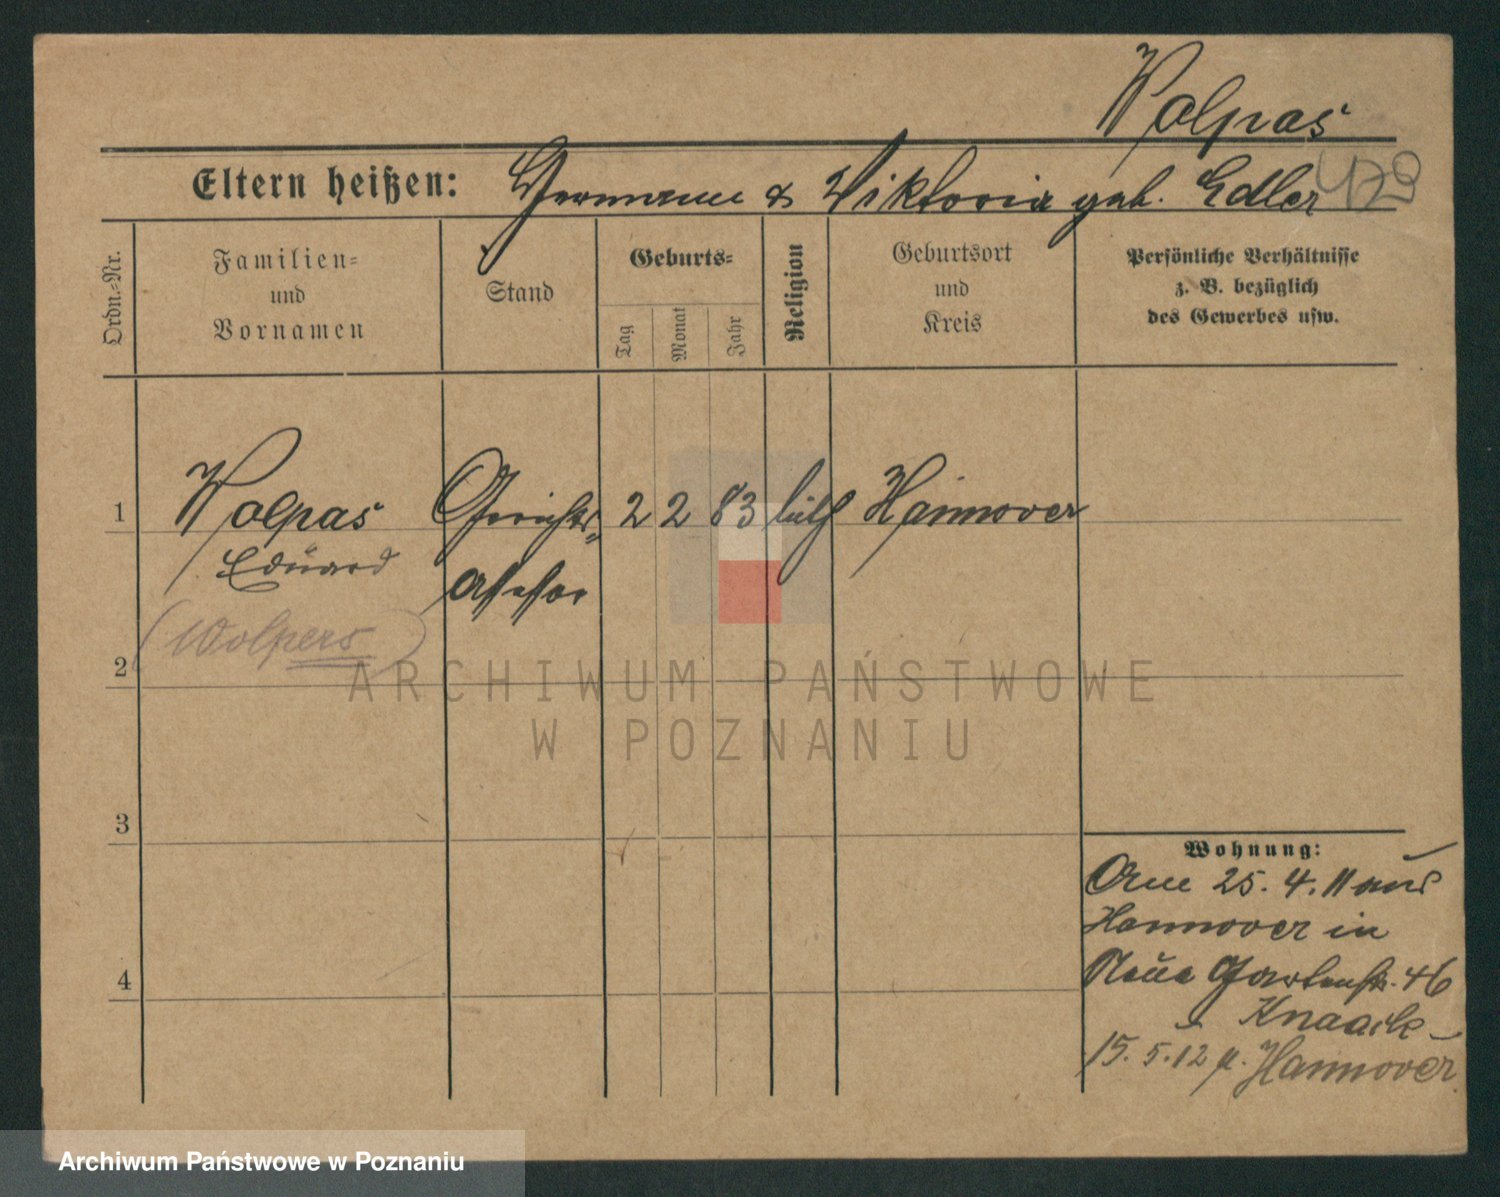 Wolpas
Eltern heißen: Hermann & Viktoria geb. Edler
Ordn.-Nr.
Familien-
und
Vornamen
Stand
Geburts-
Tag
Monat
Jahr
Religion
Geburtsort
und
Kreis
Persönliche Verhältnisse
z. B. bezüglich
des Gewerbes usw.
1
Wolpas
Eduard
Gerichts-
assessor
2 2 83 luth Hannover
(Wolpers)
2
3
4
Wohnung:
Am 25. 4. 11 aus
Hannover in
Neue Gartenstr. 46
Knaack
15. 5. 12 n. Hannover
ARCHIWUM PAŃSTWOWE
W POZNANIU
Archiwum Państwowe w Poznaniu